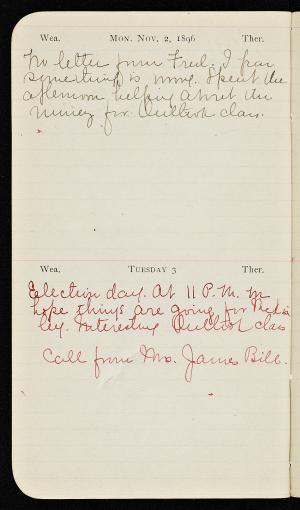 Wea. MON. NOV. 2, 1896 Ther.
No letter from Fred. I fear
something is wrong. Spent the
afternoon helping about the
money for Outlook class.
Wea. TUESDAY 3 Ther.
Election day. At 11 P.M. we
hope things are going for McKin
ley. Interesting Outlook class
Call from Mrs. James Bill.